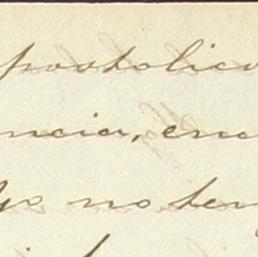 postolico
ncia, enc
Yo no ten